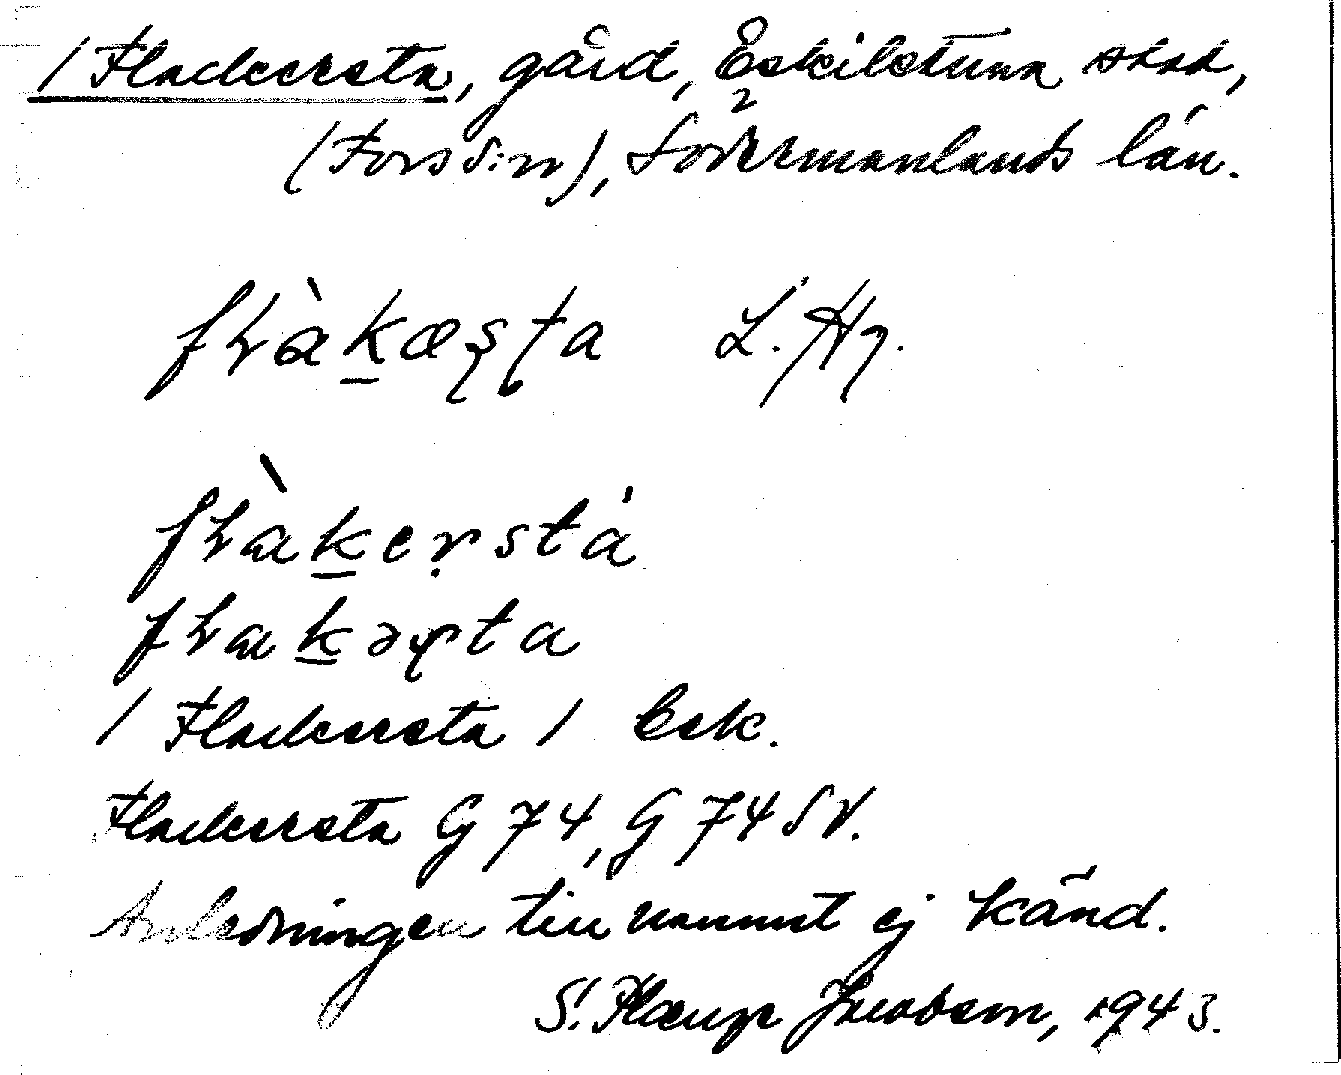 / Flackersta, gård, Eskilstuna stad,
(Fors s:n), Södermanlands län.
flàkæṣṭa L. Hg.
flàkeṛstá
flakəṣta
/ Flackersta / Eek.
Flackersta G 74, G 74 SV.
Anledningen till namnet ej känd.
S. Jacobson, 1943.